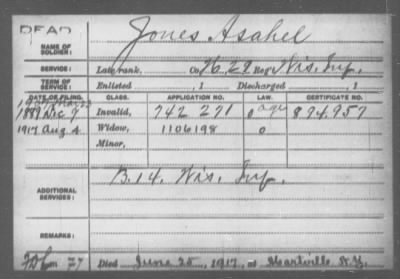 DEAD
NAME OF SOLDIER: Jones Asahel
SERVICE: Late rank, Co H, 29 Reg't Wis. Inf.
TERM OF SERVICE: Enlisted , 1 Discharged , 1
DATE OF FILING. CLASS. APPLICATION NO. LAW. CERTIFICATE NO.
1889 Dec 9 Invalid, 742 271 age 874.957
1917 Aug 4 Widow, 1106198 0
Minor,
ADDITIONAL SERVICES: B. 14. Wis. Inf.
REMARKS:
Died June 25, 1917, at N.Y.